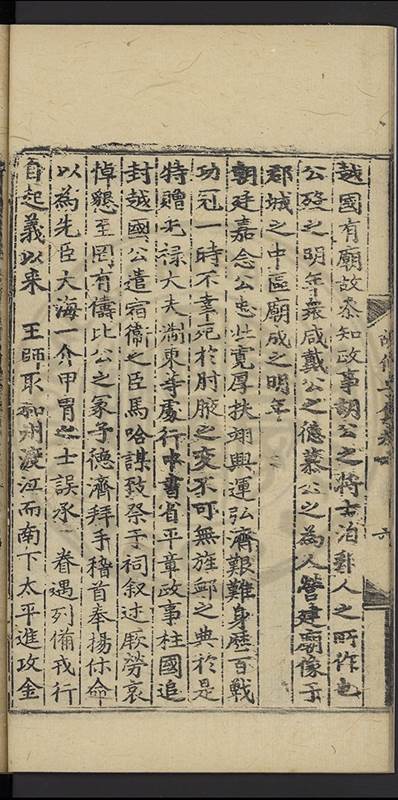 越國有廟故叅知政事胡公之將士洎郡人之所作也
公歿之明年衆咸戴公之德慕公之為人營建廟像于
郡城之中區廟成之明年
朝廷嘉念公忠壯寬厚扶翊興運弘濟艱難身歷百戰
功冠一時不幸死於肘腋之變不可無旌邺之典於是
特贈光禄大夫浙東等處行中書省平章政事柱國追
封越國公遣宿衛之臣馬哈謀致祭于祠叙述厥勞哀
悼懇至罔有儔比公之冢子德濟拜手稽首奉揚休命
以為先臣大海一介甲胄之士誤承 眷遇列備戎行
自起義以来 王師取和州渡江而南下太平進攻金
六